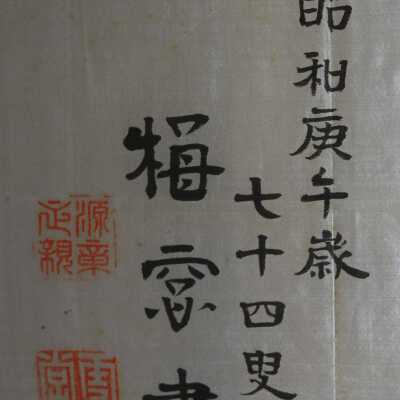 昭和庚午歳
七十四叟
梅窓書
源章
正親